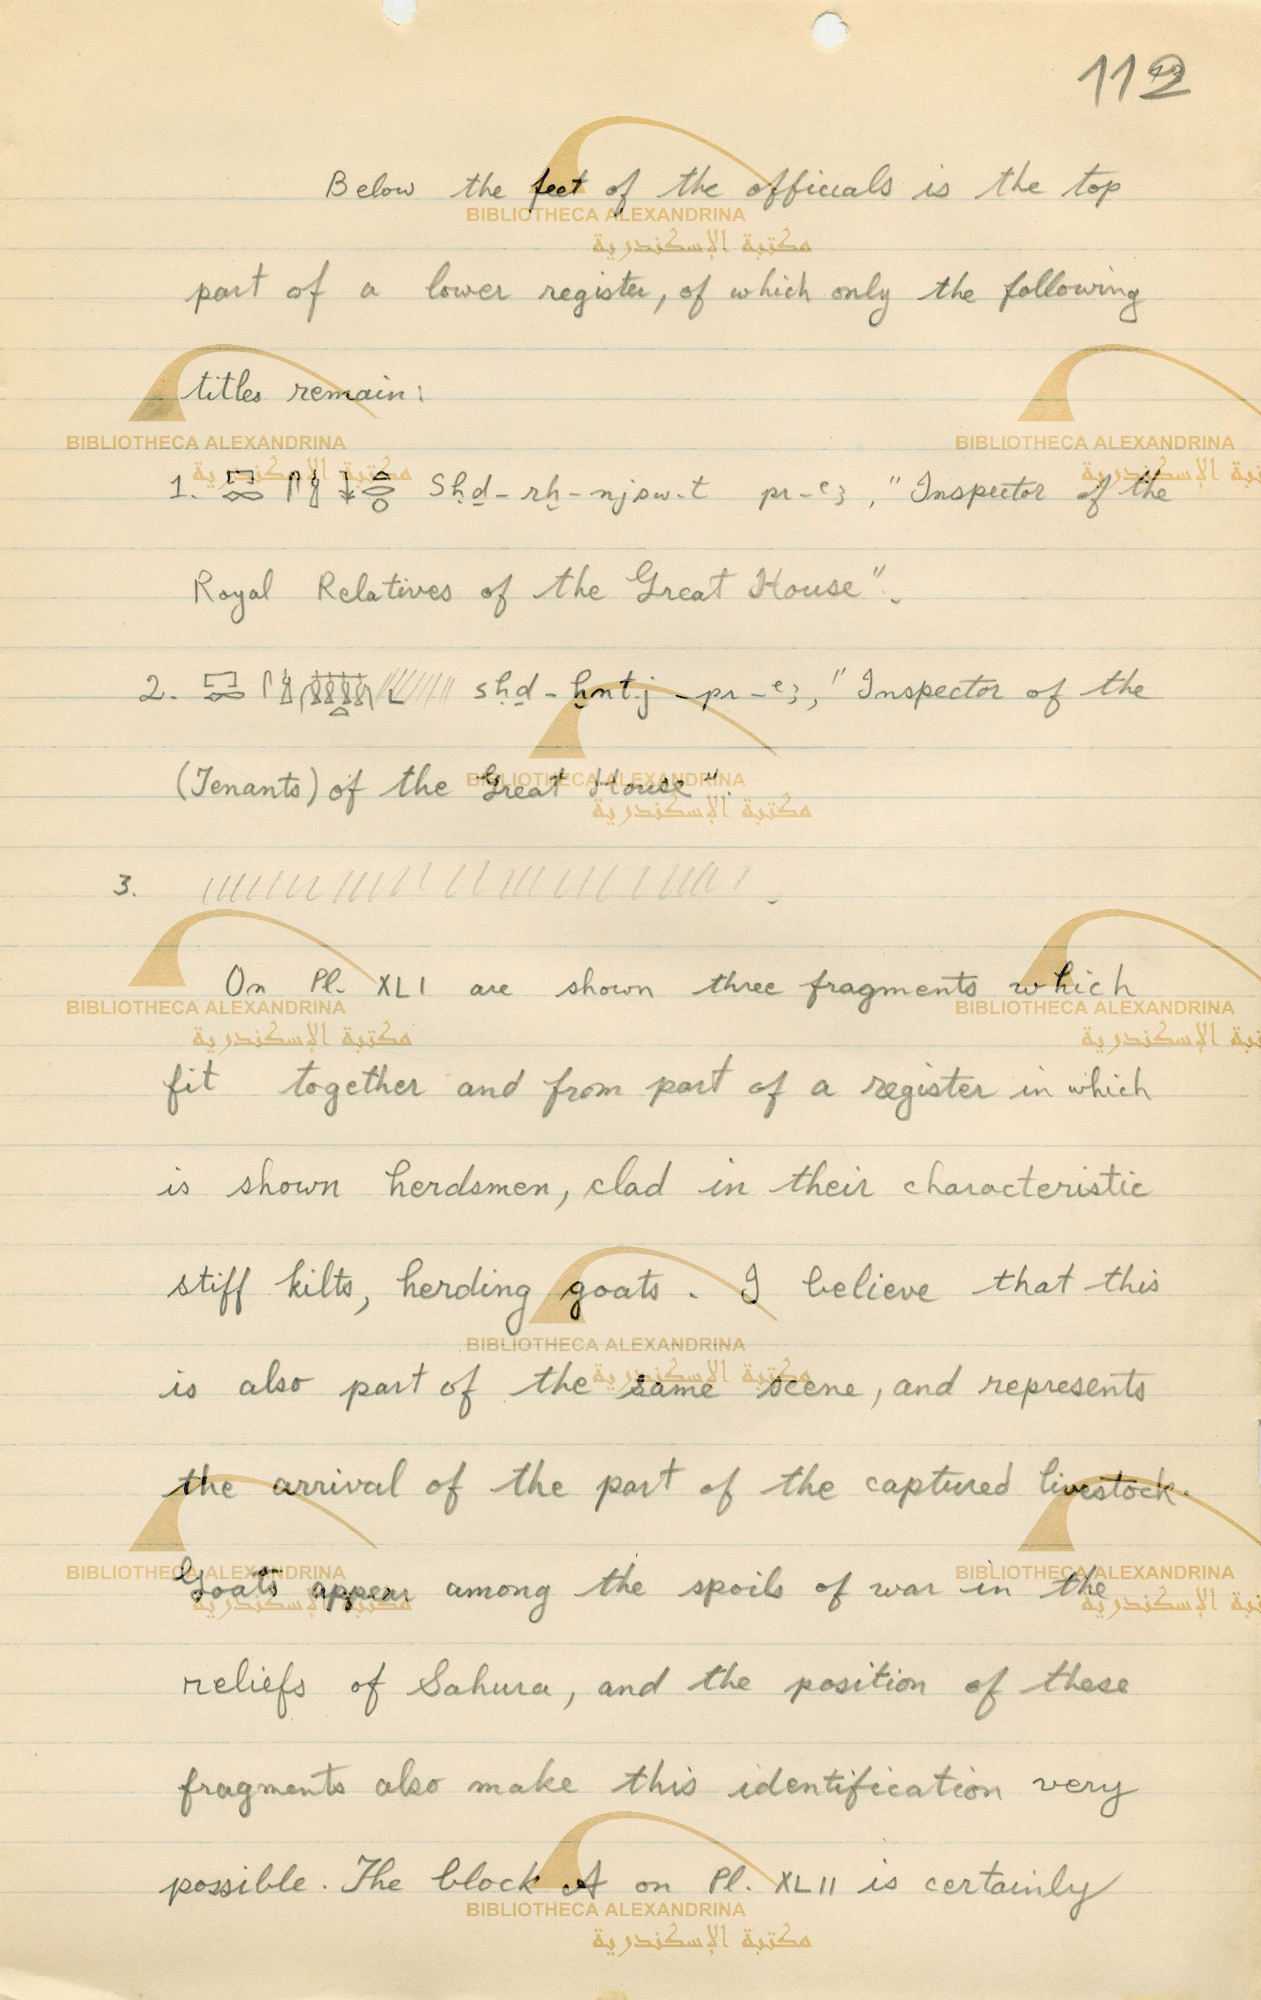 112
Below the feet of the officials is the top
part of a lower register, of which only the following
titles remain:
1. Sḥḏ-rḫ-njsw.t pr-ꜥꜣ, "Inspector of the
Royal Relatives of the Great House".
2. sḥḏ-ḫnt.j-pr-ꜥꜣ, "Inspector of the
(Tenants) of the Great House".
3.
On Pl. XLI are shown three fragments which
fit together and from part of a register in which
is shown herdsmen, clad in their characteristic
stiff kilts, herding goats. I believe that this
is also part of the same scene, and represents
the arrival of the part of the captured livestock.
Goats appear among the spoils of war in the
reliefs of Sahura, and the position of these
fragments also make this identification very
possible. The block A on Pl. XLII is certainly
BIBLIOTHECA ALEXANDRINA
مكتبة الإسكندرية